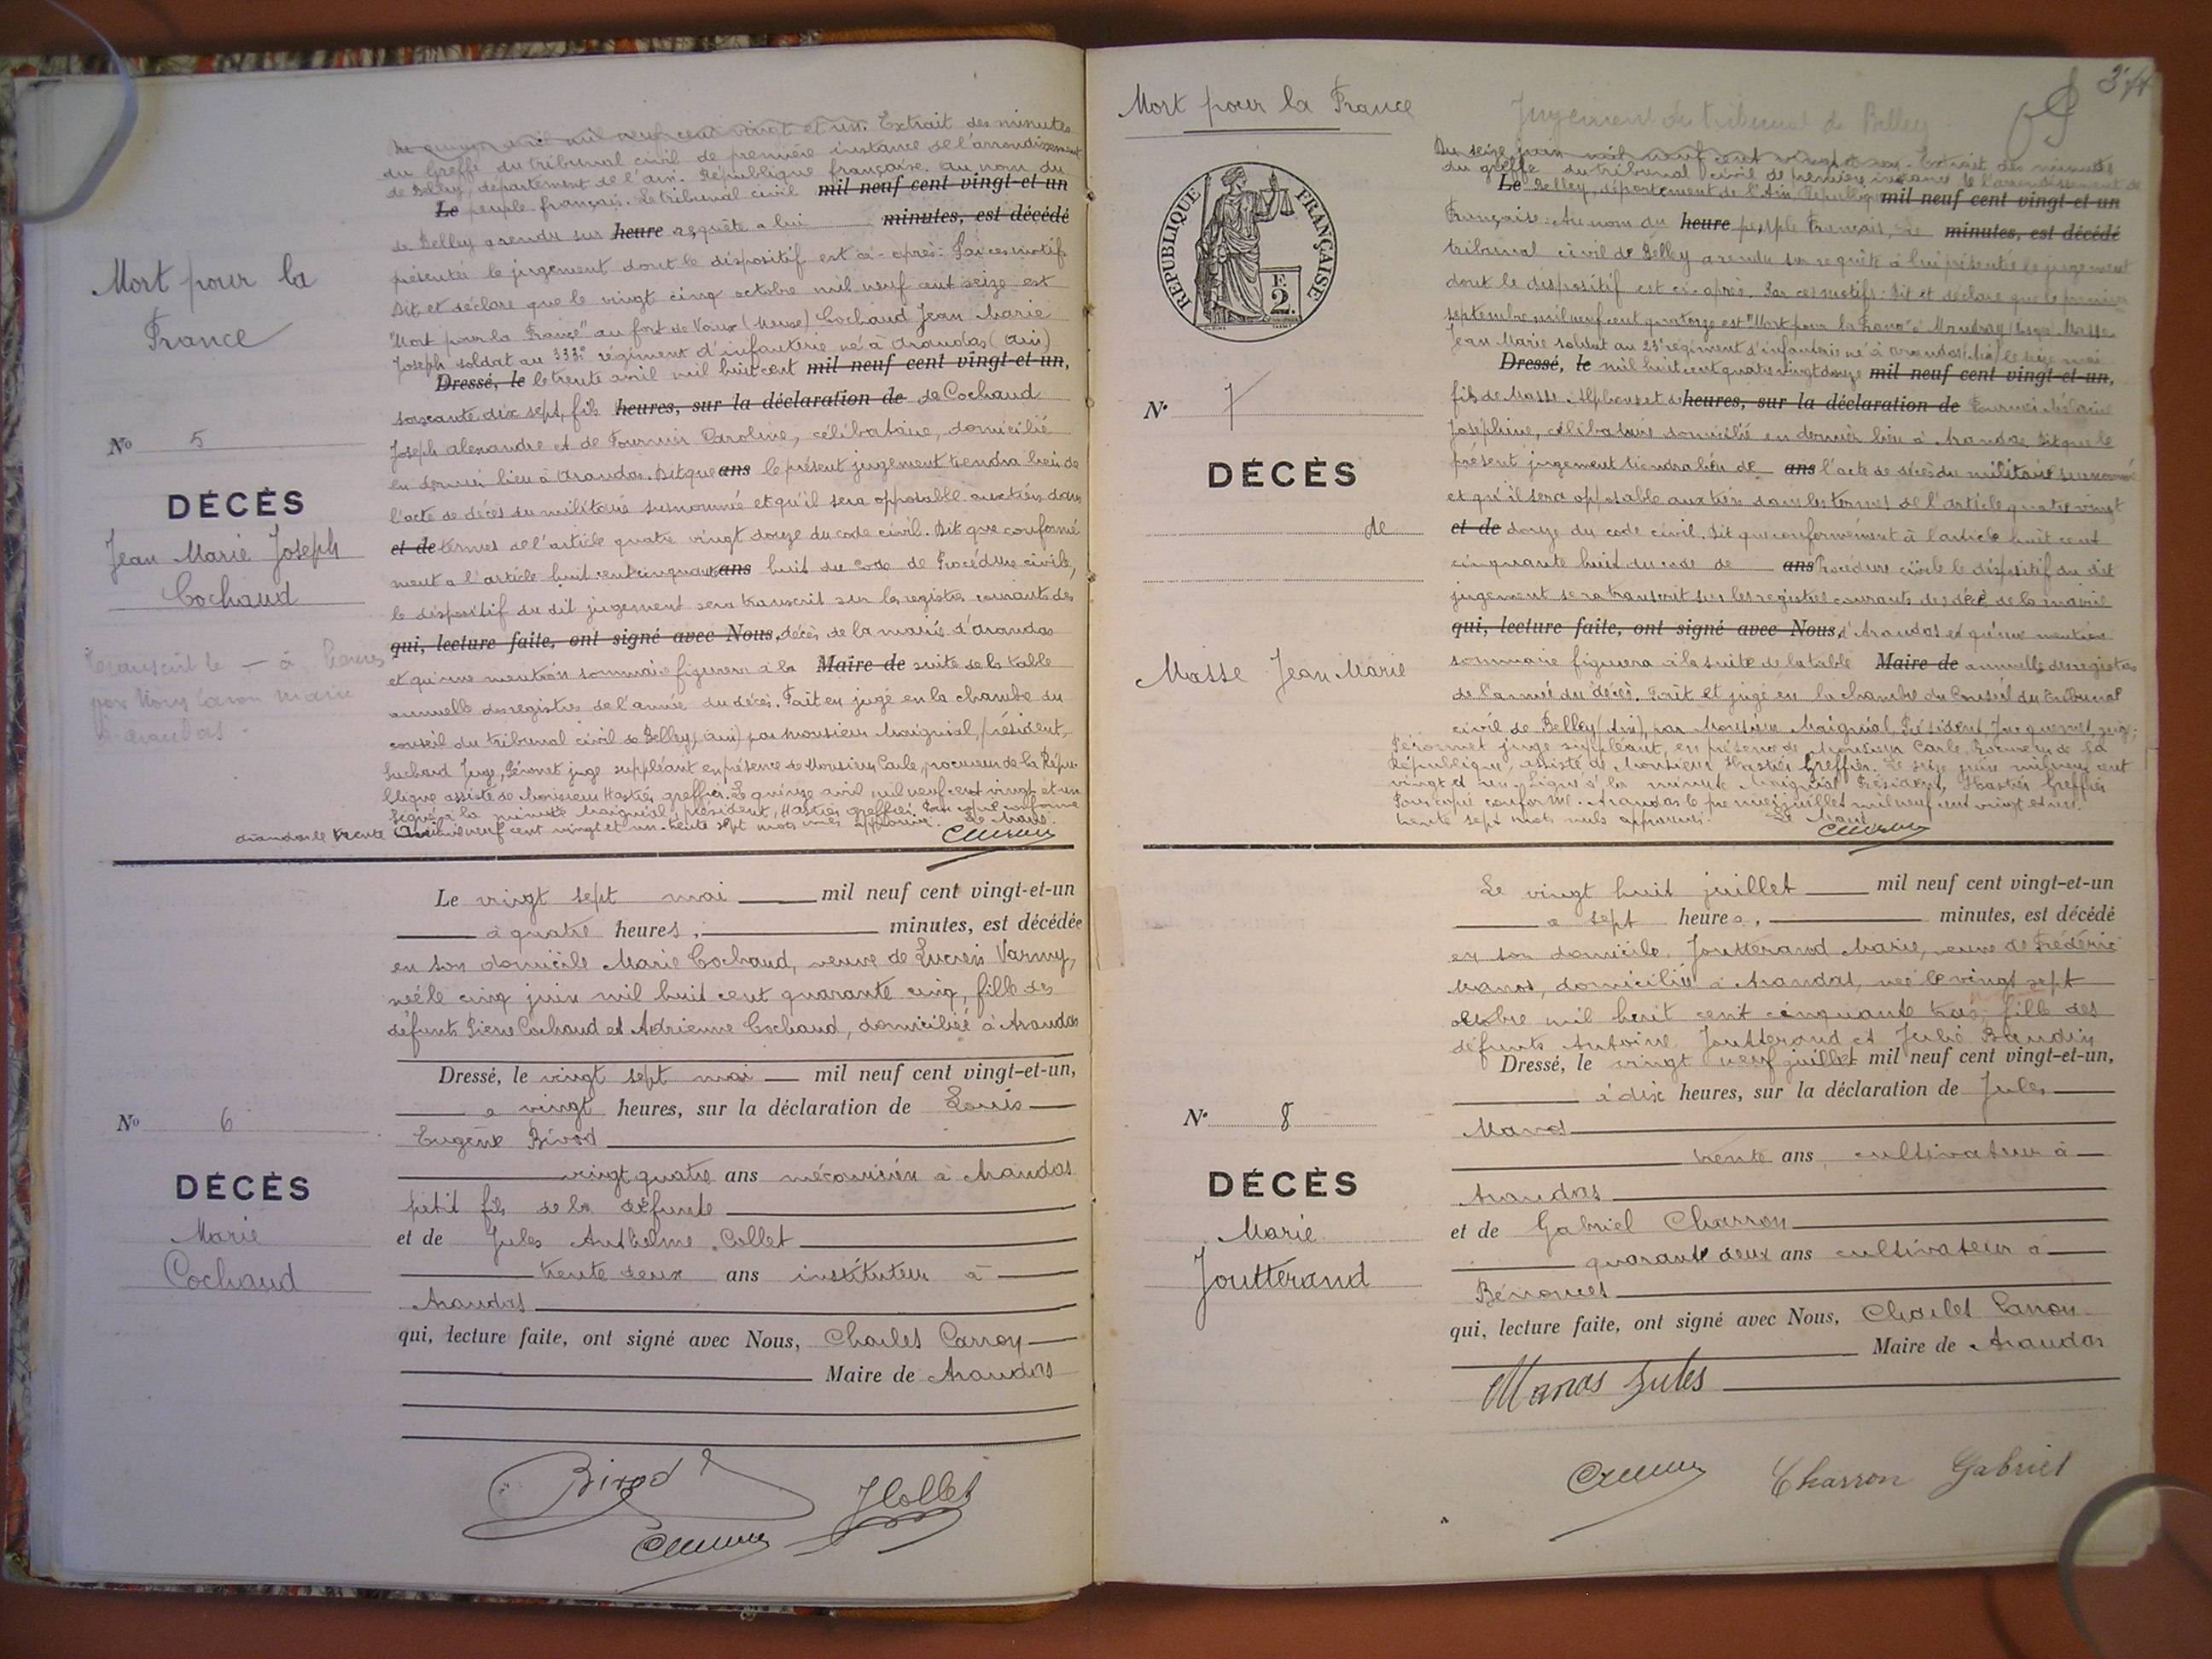 Mort pour la
France
No 5
DÉCÈS
Jean Marie Joseph
Cochaud
Extrait des minutes
du Greffe du tribunal civil de première instance de l'arrondissement
de Belley, département de l'ain. République française. au nom du
Le peuple français. Le tribunal civil mil neuf cent vingt-et-un
de Belley a rendu sur heure requête a lui minutes, est décédé
présentée le jugement dont le dispositif est ci-après: Par ces motifs
Dit et déclare que le vingt cinq octobre mil neuf cent seize est
"Mort pour la France" au fort de Vaux (Meuse) Cochaud Jean Marie
Joseph soldat au 333e régiment d'infanterie né à Arandas (Ain)
Dressé, le le trente avril mil huit cent mil neuf cent vingt-et-un,
soixante dix sept, fils heures, sur la déclaration de de Cochaud
Joseph alexandre et de Fournier Caroline, célibataire, domicilié
en dernier lieu à Arandas. Dit que ans le présent jugement tiendra lieu de
l'acte de décès du militaire susnommé et qu'il sera opposable aux tiers dans
et de termes de l'article quatre vingt douze du code civil. Dit que conformé
ment a l'article huit cent cinquante ans huit du code de Procédure civile,
le dispositif du dit jugement sera transcrit sur les registres courants des
qui, lecture faite, ont signé avec Nous, décès de la mairie d'Arandas
et qu'une mention sommaire figurera à la Maire de suite de la table
annuelle des registres de l'année du décès. Fait et jugé en la chambre du
conseil du tribunal civil de Belley (ain) par Monsieur Maignial, président,
Juge, Péronet juge suppléant en présence de Monsieur Carle, procureur de la Répu-
blique assisté de Monsieur Hastiés greffier. Le quinze avril mil neuf cent vingt et un
Signé à la minute Maignial, président, Hastiés greffier. Pour copie conforme
Arandas le trente Avril mil neuf cent vingt et un. trente sept mots nuls approuvés. Le Maire.
No 6
DÉCÈS
Marie
Cochaud
Le vingt sept mai mil neuf cent vingt-et-un
à quatre heures, minutes, est décédée
en son domicile Marie Cochaud, veuve de Lucien Varmy,
née le cinq juin mil huit cent quarante cinq, fille des
défunts Pierre Cochaud et Adrienne Cochaud, domiciliée à Arandas
Dressé, le vingt sept mai mil neuf cent vingt-et-un,
a vingt heures, sur la déclaration de Louis
Eugène Bivod
vingt quatre ans mécanicien à Arandas
petit fils de la défunte
et de Jules Anthelme Collet
trente deux ans instituteur à
Arandas
qui, lecture faite, ont signé avec Nous, Charles Carron
Maire de Arandas
Bivod
JCollet
Mort pour la France
Jugement du tribunal de Belley
RÉPUBLIQUE FRANÇAISE
F.
2.
No 7
DÉCÈS
de
Masse Jean Marie
Du seize juin mil neuf cent vingt et un - Extrait des minutes
du greffe du tribunal civil de première instance de l'arrondissement de
Le Belley, département de l'Ain, République mil neuf cent vingt-et-un
Française: Au nom du heure peuple Français, Le minutes, est décédé
tribunal civil de Belley a rendu sur requête à lui présentée le jugement
dont le dispositif est ci-après. Par ces motifs: Dit et déclare que le premier
septembre mil neuf cent quatorze est "Mort pour la France" à Mandray (Vosges) Masse
Jean Marie soldat au 23e régiment d'infanterie né à Arandas (Ain) le seize mai
Dressé, le mil huit cent quatre vingt douze mil neuf cent vingt-et-un,
fils de Masse Alphonse et de heures, sur la déclaration de Fournier
Joséphine, célibataire domicilié en dernier lieu à Arandas. Dit que le
présent jugement tiendra lieu de ans l'acte de décès du militaire susnommé
et qu'il sera opposable aux tiers dans les termes de l'article quatre vingt
et de douze du code civil. Dit que conformément à l'article huit cent
cinquante huit du code de ans Procédure civile le dispositif du dit
jugement sera transcrit sur les registres courants des décès de la mairie
qui, lecture faite, ont signé avec Nous, d'Arandas et qu'une mention
sommaire figurera à la suite de la table Maire de annuelle des registres
de l'année du décès. Fait et jugé en la chambre du Conseil du tribunal
civil de Belley (Ain), par Monsieur Maignial, Président, juge,
Péronnet juge suppléant, en présence de Monsieur Carle, Procureur de la
République, assisté de Monsieur Hastiés Greffier. Le seize juin mil neuf cent
vingt et un. Signé à la minute Maignial Président, Hastiés Greffier
Pour copie conforme. Arandas le premier juillet mil neuf cent vingt et un.
trente sept mots nuls approuvés. Le Maire
No 8
DÉCÈS
Marie
Joutterand
Le vingt huit juillet mil neuf cent vingt-et-un
a sept heures, minutes, est décédé
en son domicile, Joutterand Marie, veuve de Frédéric
Manos, domiciliée à Arandas, née le vingt sept
octobre mil huit cent cinquante trois, fille des
défunts Antoine Joutterand et Julie Baudin
Dressé, le vingt neuf juillet mil neuf cent vingt-et-un,
à dix heures, sur la déclaration de Jules
Manos
trente ans, cultivateur à
Arandas
et de Gabriel Charron
quarante deux ans cultivateur à
Bénonces
qui, lecture faite, ont signé avec Nous, Charles Carron
Maire de Arandas
Manos Jules
Charron Gabriel